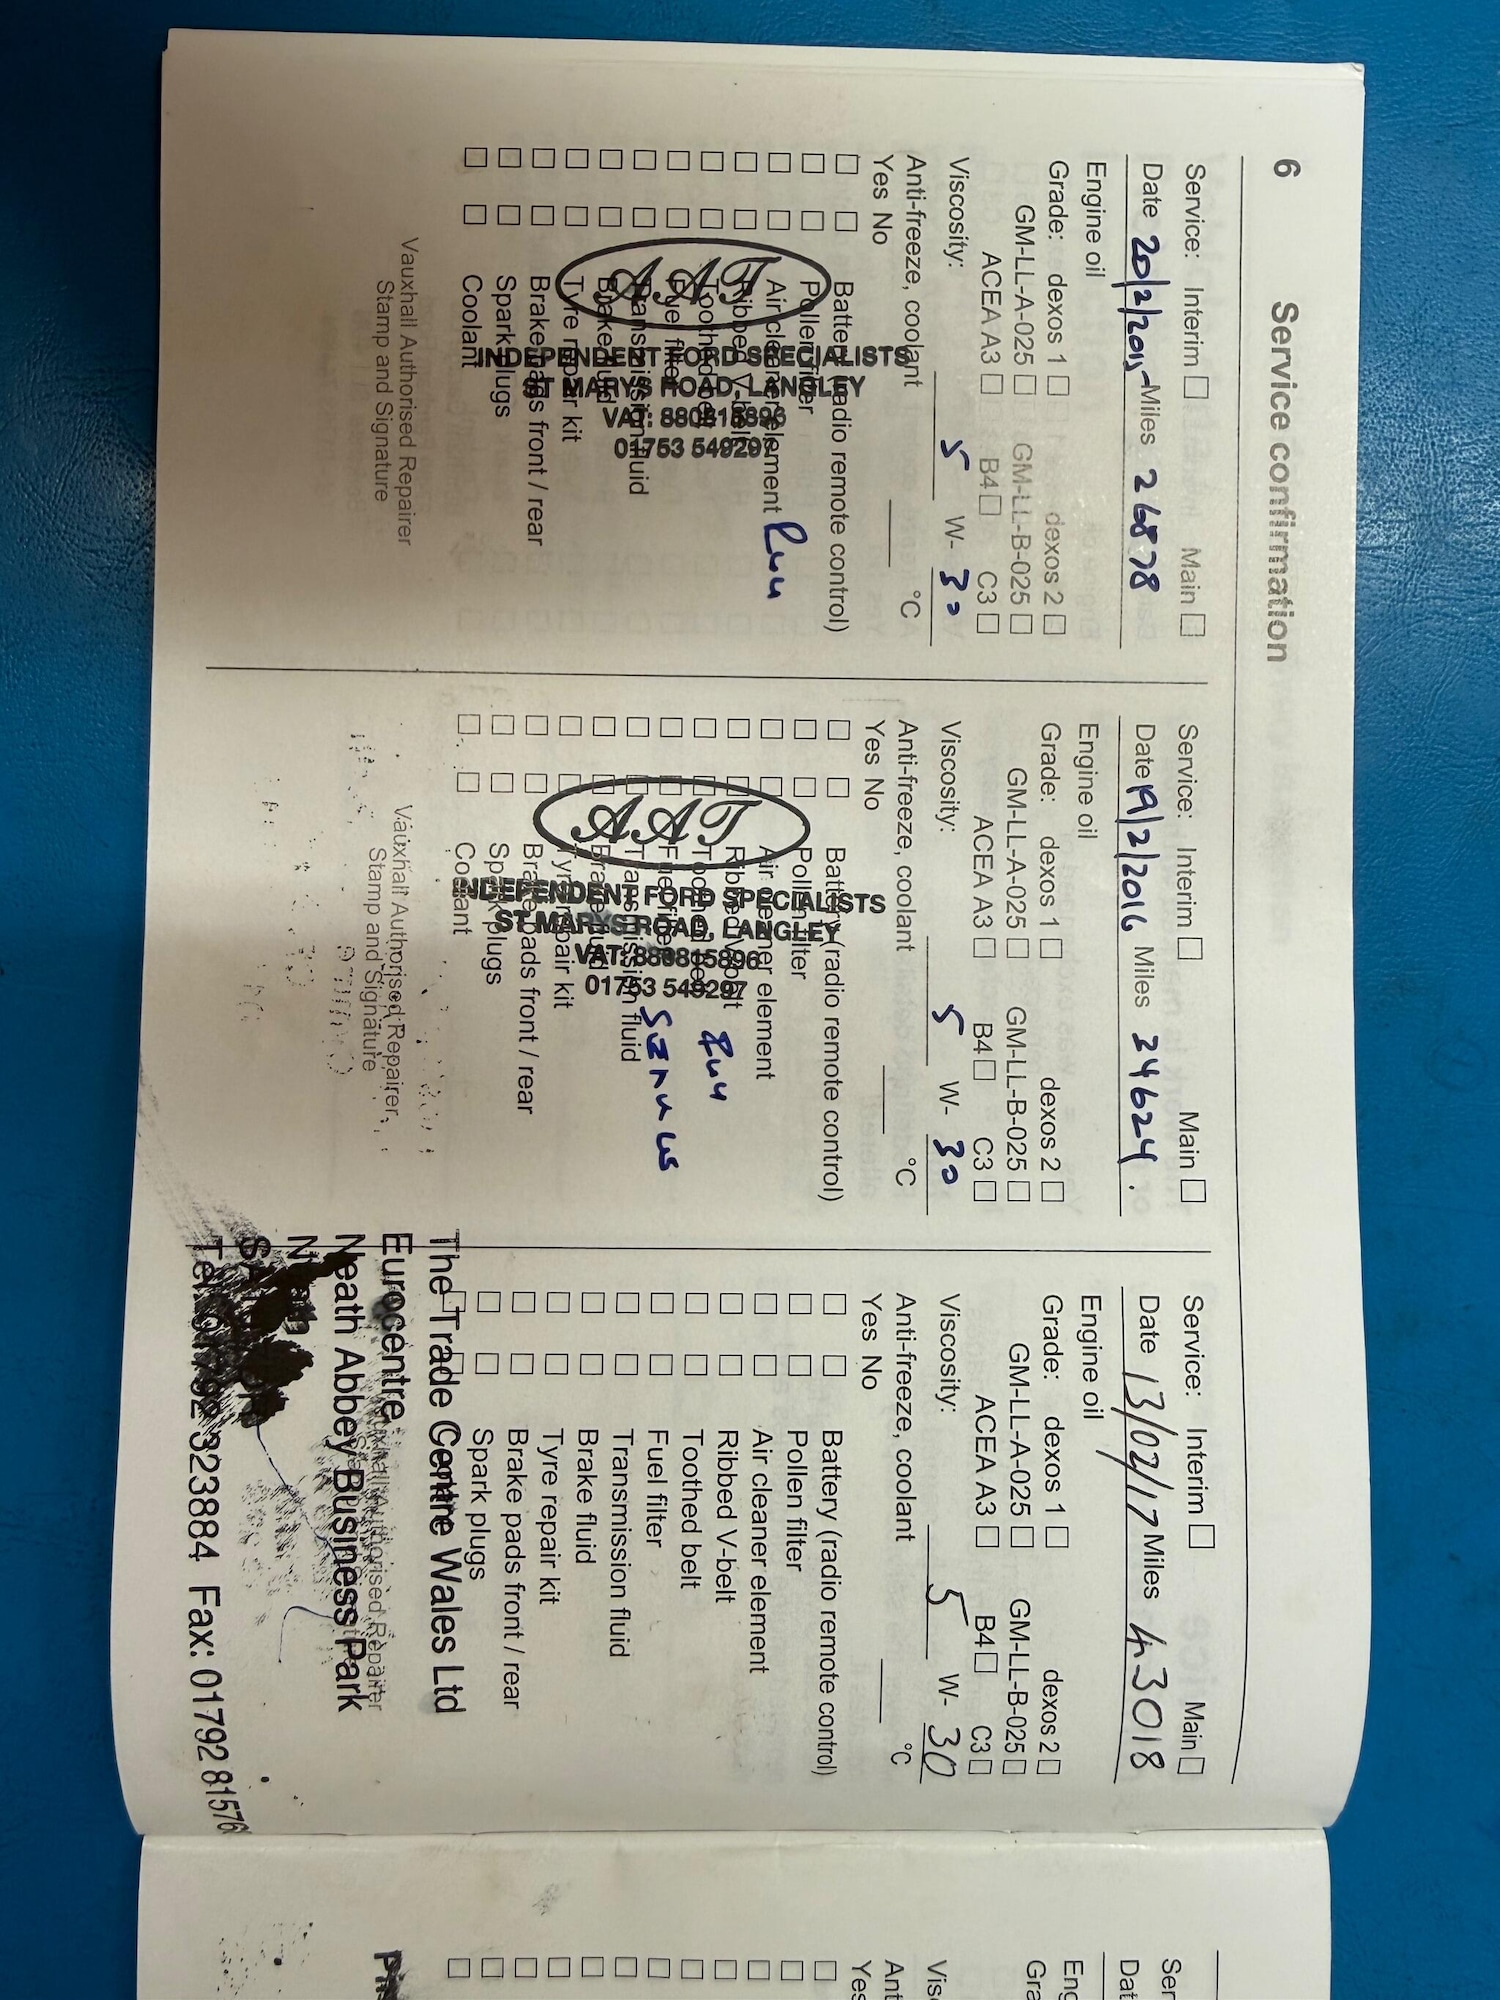 6 Service confirmation
Service: Interim Main
Date 20/2/2015 Miles 26878
Engine oil
Grade: dexos 1 dexos 2
GM-LL-A-025 GM-LL-B-025
ACEA A3 B4 C3
Viscosity: 5 W- 30
Anti-freeze, coolant °C
Yes No
Battery (radio remote control)
Pollen filter
Air cleaner element
Ribbed V-belt
Toothed belt
Fuel filter
Transmission fluid
Brake fluid
Tyre repair kit
Brake pads front / rear
Spark plugs
Coolant
AAT
INDEPENDENT FORD SPECIALISTS
ST MARYS ROAD, LANGLEY
VAT: 880815896
01753 549297
Vauxhall Authorised Repairer
Stamp and Signature
Service: Interim Main
Date 19/2/2016 Miles 34624
Engine oil
Grade: dexos 1 dexos 2
GM-LL-A-025 GM-LL-B-025
ACEA A3 B4 C3
Viscosity: 5 W- 30
Anti-freeze, coolant °C
Yes No
Battery (radio remote control)
Pollen filter
Air cleaner element
Ribbed V-belt
Toothed belt
Fuel filter
Transmission fluid
Brake fluid
Tyre repair kit
Brake pads front / rear
Spark plugs
Coolant
AAT
INDEPENDENT FORD SPECIALISTS
ST MARYS ROAD, LANGLEY
VAT: 880815896
01753 549297
Vauxhall Authorised Repairer
Stamp and Signature
Service: Interim Main
Date 13/02/17 Miles 43018
Engine oil
Grade: dexos 1 dexos 2
GM-LL-A-025 GM-LL-B-025
ACEA A3 B4 C3
Viscosity: 5 W- 30
Anti-freeze, coolant °C
Yes No
Battery (radio remote control)
Pollen filter
Air cleaner element
Ribbed V-belt
Toothed belt
Fuel filter
Transmission fluid
Brake fluid
Tyre repair kit
Brake pads front / rear
Spark plugs
The Trade Centre Wales Ltd
Eurocentre
Vauxhall Authorised Repairer
Neath Abbey Business Park
323884 Fax: 01792 81576
Yes